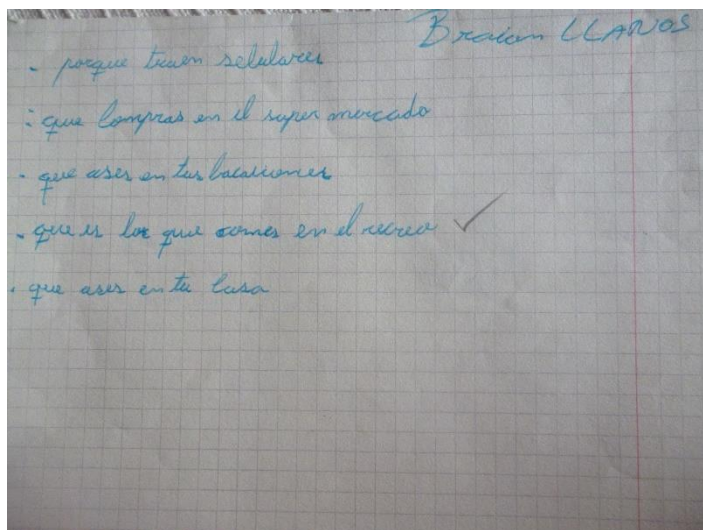 Braian LLANOS
- porque traen selulares
- que compras en el super mercado
- que ases en tus bacaciones
- que es los que comes en el recreo ✓
- que ases en tu casa